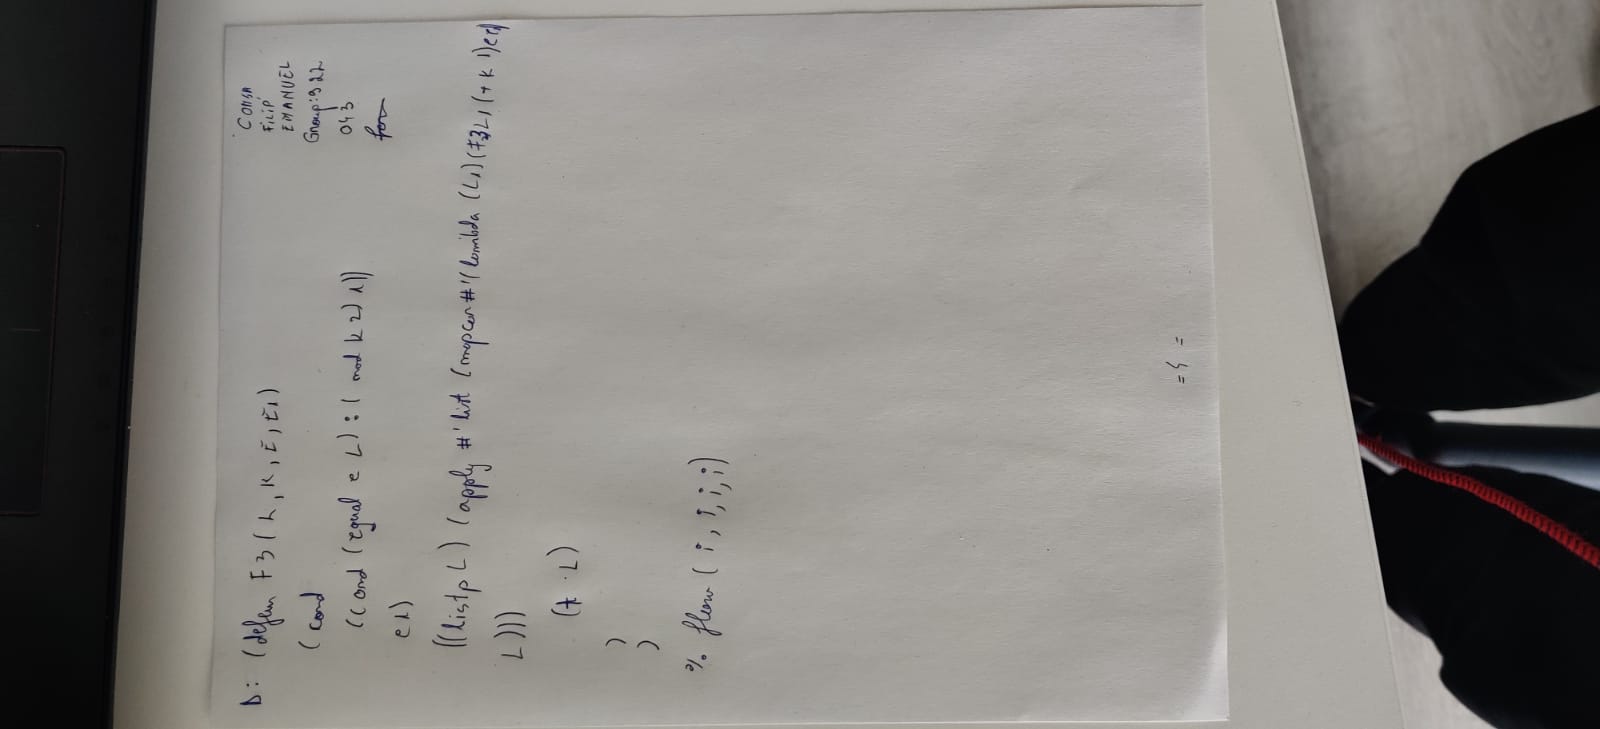 CONSA
FILIP
EMANUEL
Group: 922
043
D: (defun F3 (L, K, E, E1)
(cond
((cond (equal e L) : ( mod k 2) 1))
e1)
((listp L) (apply #'list (mapcar #'(lambda (L1) (F3 L1 (+ k 1) e e1)
L)))
(t . L)
)
)
% flow (i, i, i, i)